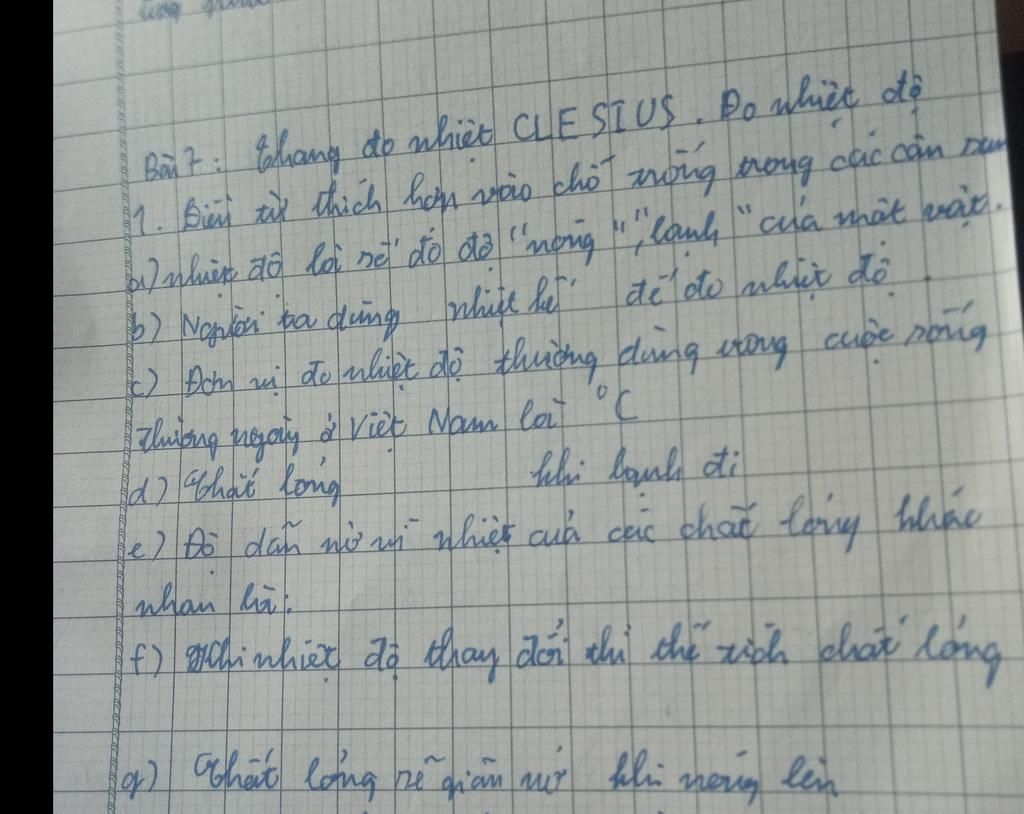 Bài 7: Thang đo nhiệt CLESIUS. Đo nhiệt độ
1. Điền từ thích hợp vào chỗ trống trong các câu sau
a) nhiệt độ là số đo độ "nóng", "lạnh" của một vật.
b) Người ta dùng nhiệt kế để đo nhiệt độ.
c) Đơn vị đo nhiệt độ thường dùng trong cuộc sống
thường ngày ở Việt Nam là °C
d) Chất lỏng khi lạnh đi
e) Độ dãn nở vì nhiệt của các chất lỏng khác
nhau là:
f) Khi nhiệt độ thay đổi thì thể tích chất lỏng
g) Chất lỏng sẽ giãn nở khi nóng lên